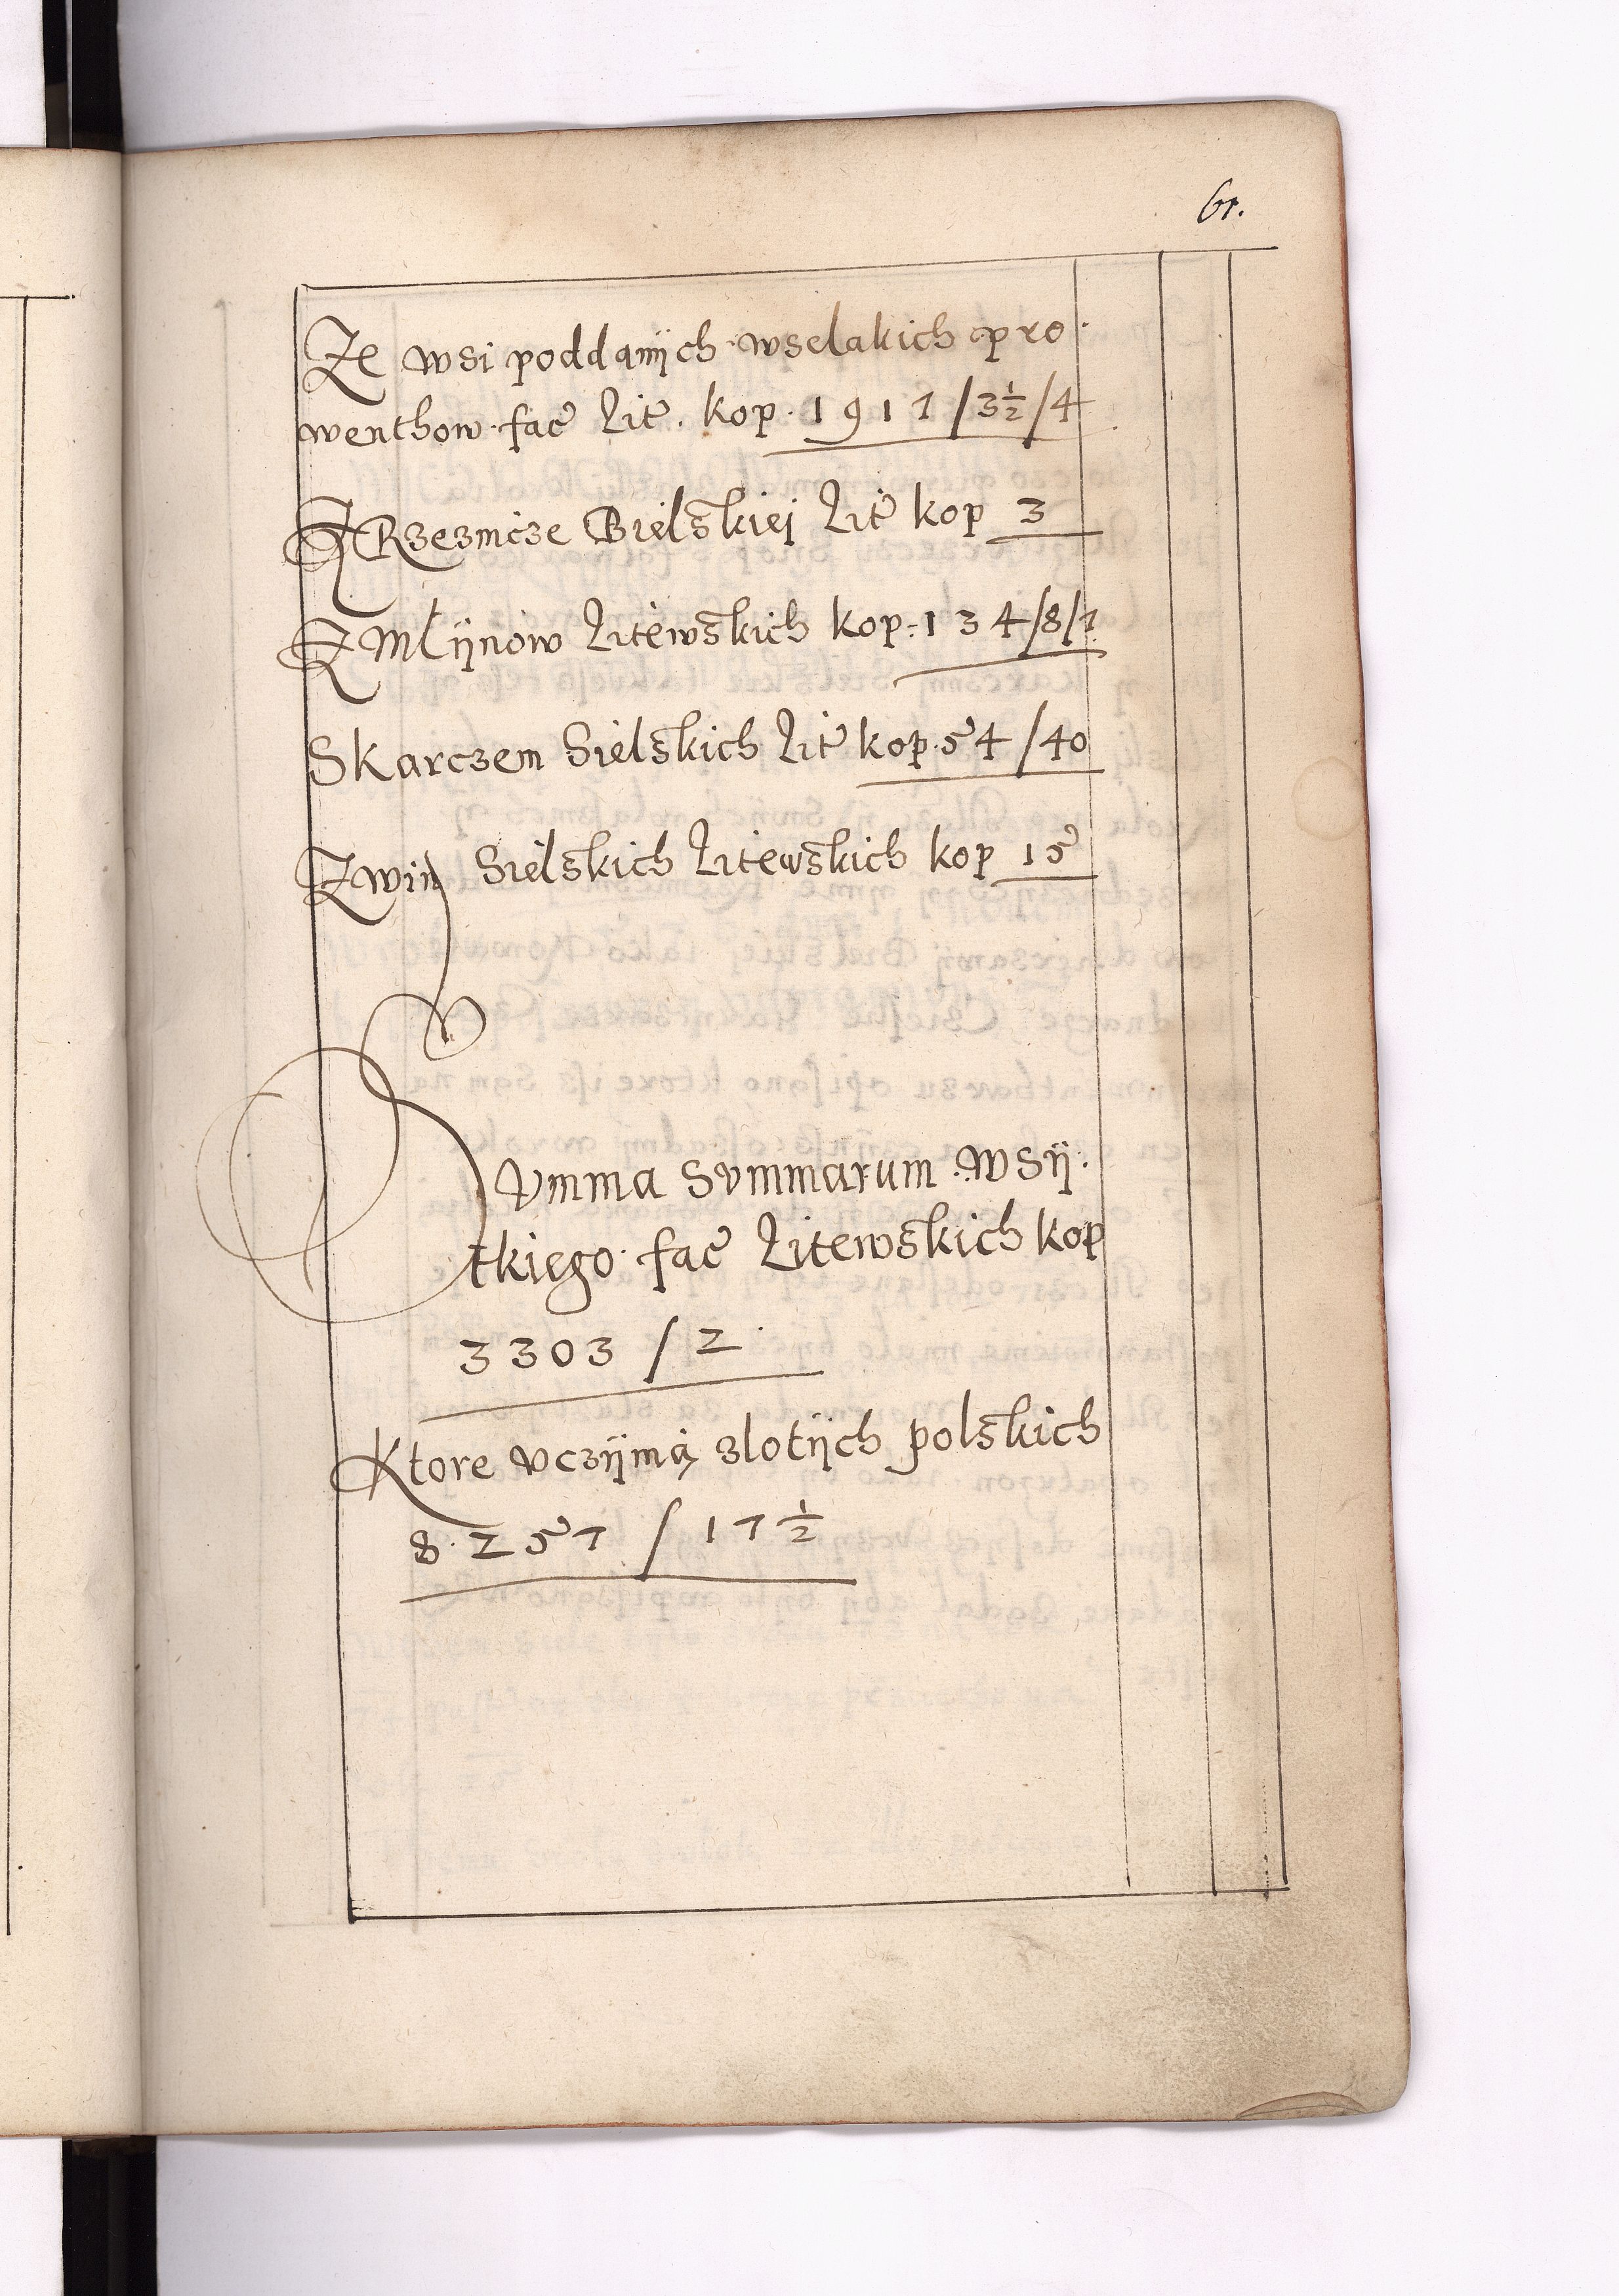 61.
Ze wsi poddanÿch wselakich pro
wenthow fać Lit. kop. 1917/3½/4
Z Rzeznicze Bielskiej Lit kop 3
Z Młÿnow Litewskich kop: 134/8/1
S Karczem Sielskich Lit kop 54/40
Z win Sielskich Litewskich kop 15
Summa Summarum wsÿ
tkiego fać Litewskich kop
3303/2
Ktore vczÿnią zlotÿch polskich
8257/17½